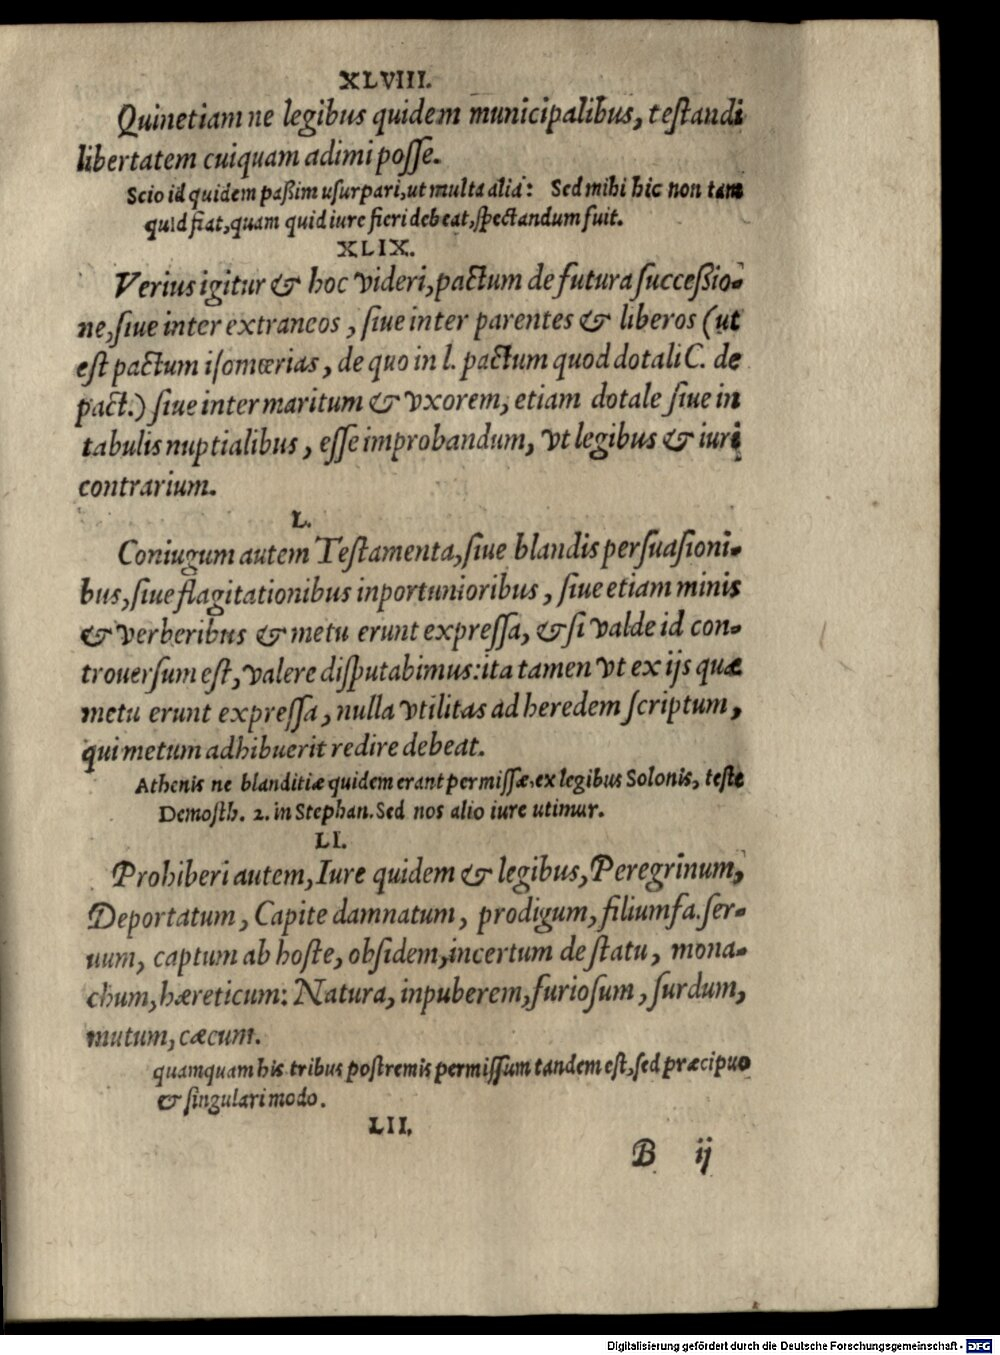 XLVIII.
Quinetiam ne legibus quidem municipalibus, teſtandi
libertatem cuiquam adimi poſſe.
Scio id quidem paßim uſurpari, ut multa alia: Sed mihi hic non tam
quid fiat, quam quid iure fieri debeat, ſpectandum fuit.
XLIX.
Verius igitur & hoc videri, pactum de futura ſucceßio-
ne, ſiue inter extraneos, ſiue inter parentes & liberos (ut
eſt pactum iſomœrias, de quo in l. pactum quod dotali C. de
pact.) ſiue inter maritum & vxorem, etiam dotale ſiue in
tabulis nuptialibus, eſſe improbandum, vt legibus & iuri
contrarium.
L.
Coniugum autem Teſtamenta, ſiue blandis perſuaſioni-
bus, ſiue flagitationibus inportunioribus, ſiue etiam minis
& verberibus & metu erunt expreſſa, & ſi valde id con-
trouerſum eſt, valere diſputabimus: ita tamen vt ex ijs quæ
metu erunt expreſſa, nulla vtilitas ad heredem ſcriptum,
qui metum adhibuerit redire debeat.
Athenis ne blanditiæ quidem erant permiſſæ, ex legibus Solonis, teſte
Demoſth. 2. in Stephan. Sed nos alio iure utimur.
LI.
Prohiberi autem, Iure quidem & legibus, Peregrinum,
Deportatum, Capite damnatum, prodigum, filiumfa. ſer-
uum, captum ab hoſte, obſidem, incertum de ſtatu, mona-
chum, hæreticum: Natura, inpuberem, furioſum, ſurdum,
mutum, cæcum.
quamquam his tribus poſtremis permiſſum tandem eſt, ſed præcipuo
& ſingulari modo.
LII.
B ij
Digitalisierung gefördert durch die Deutsche Forschungsgemeinschaft - DFG